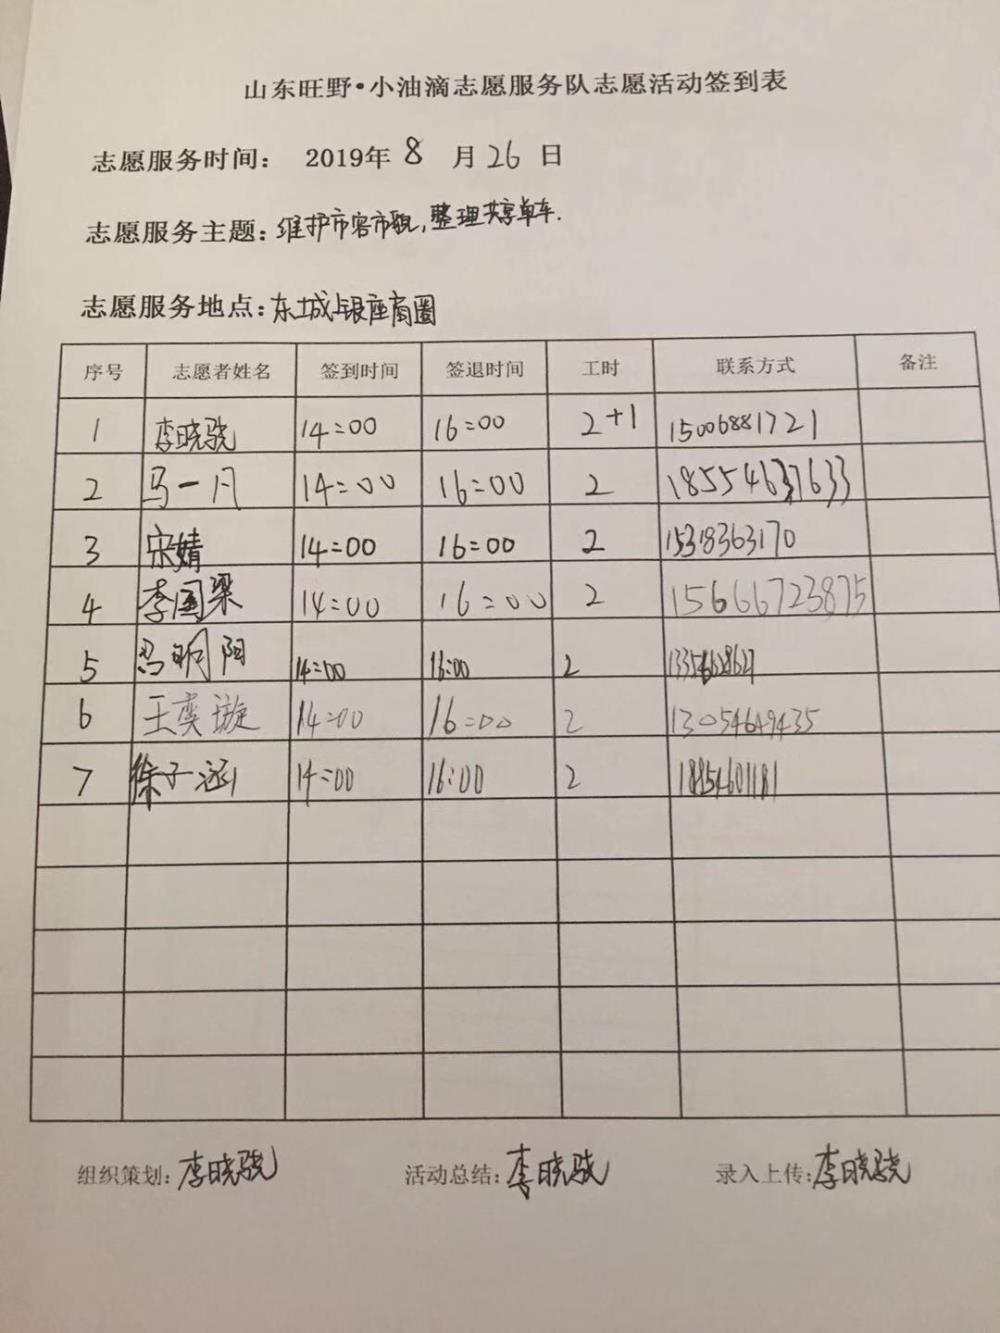 山东旺野•小油滴志愿服务队志愿活动签到表
志愿服务时间： 2019年 8 月 26 日
志愿服务主题：维护市容市貌，整理共享单车.
志愿服务地点：东城银座商圈
序号 志愿者姓名 签到时间 签退时间 工时 联系方式 备注
1 李晓骁 14:00 16:00 2+1 15006881721
2 马一凡 14:00 16:00 2 18554637633
3 宋婧 14:00 16:00 2 15318363170
4 李国梁 14:00 16:00 2 15666723875
5 马明阳 14:00 16:00 2
6 王奕璇 14:00 16:00 2 13054649435
7 徐子涵 14:00 16:00 2
组织策划：李晓骁 活动总结：李晓骁 录入上传：李晓骁